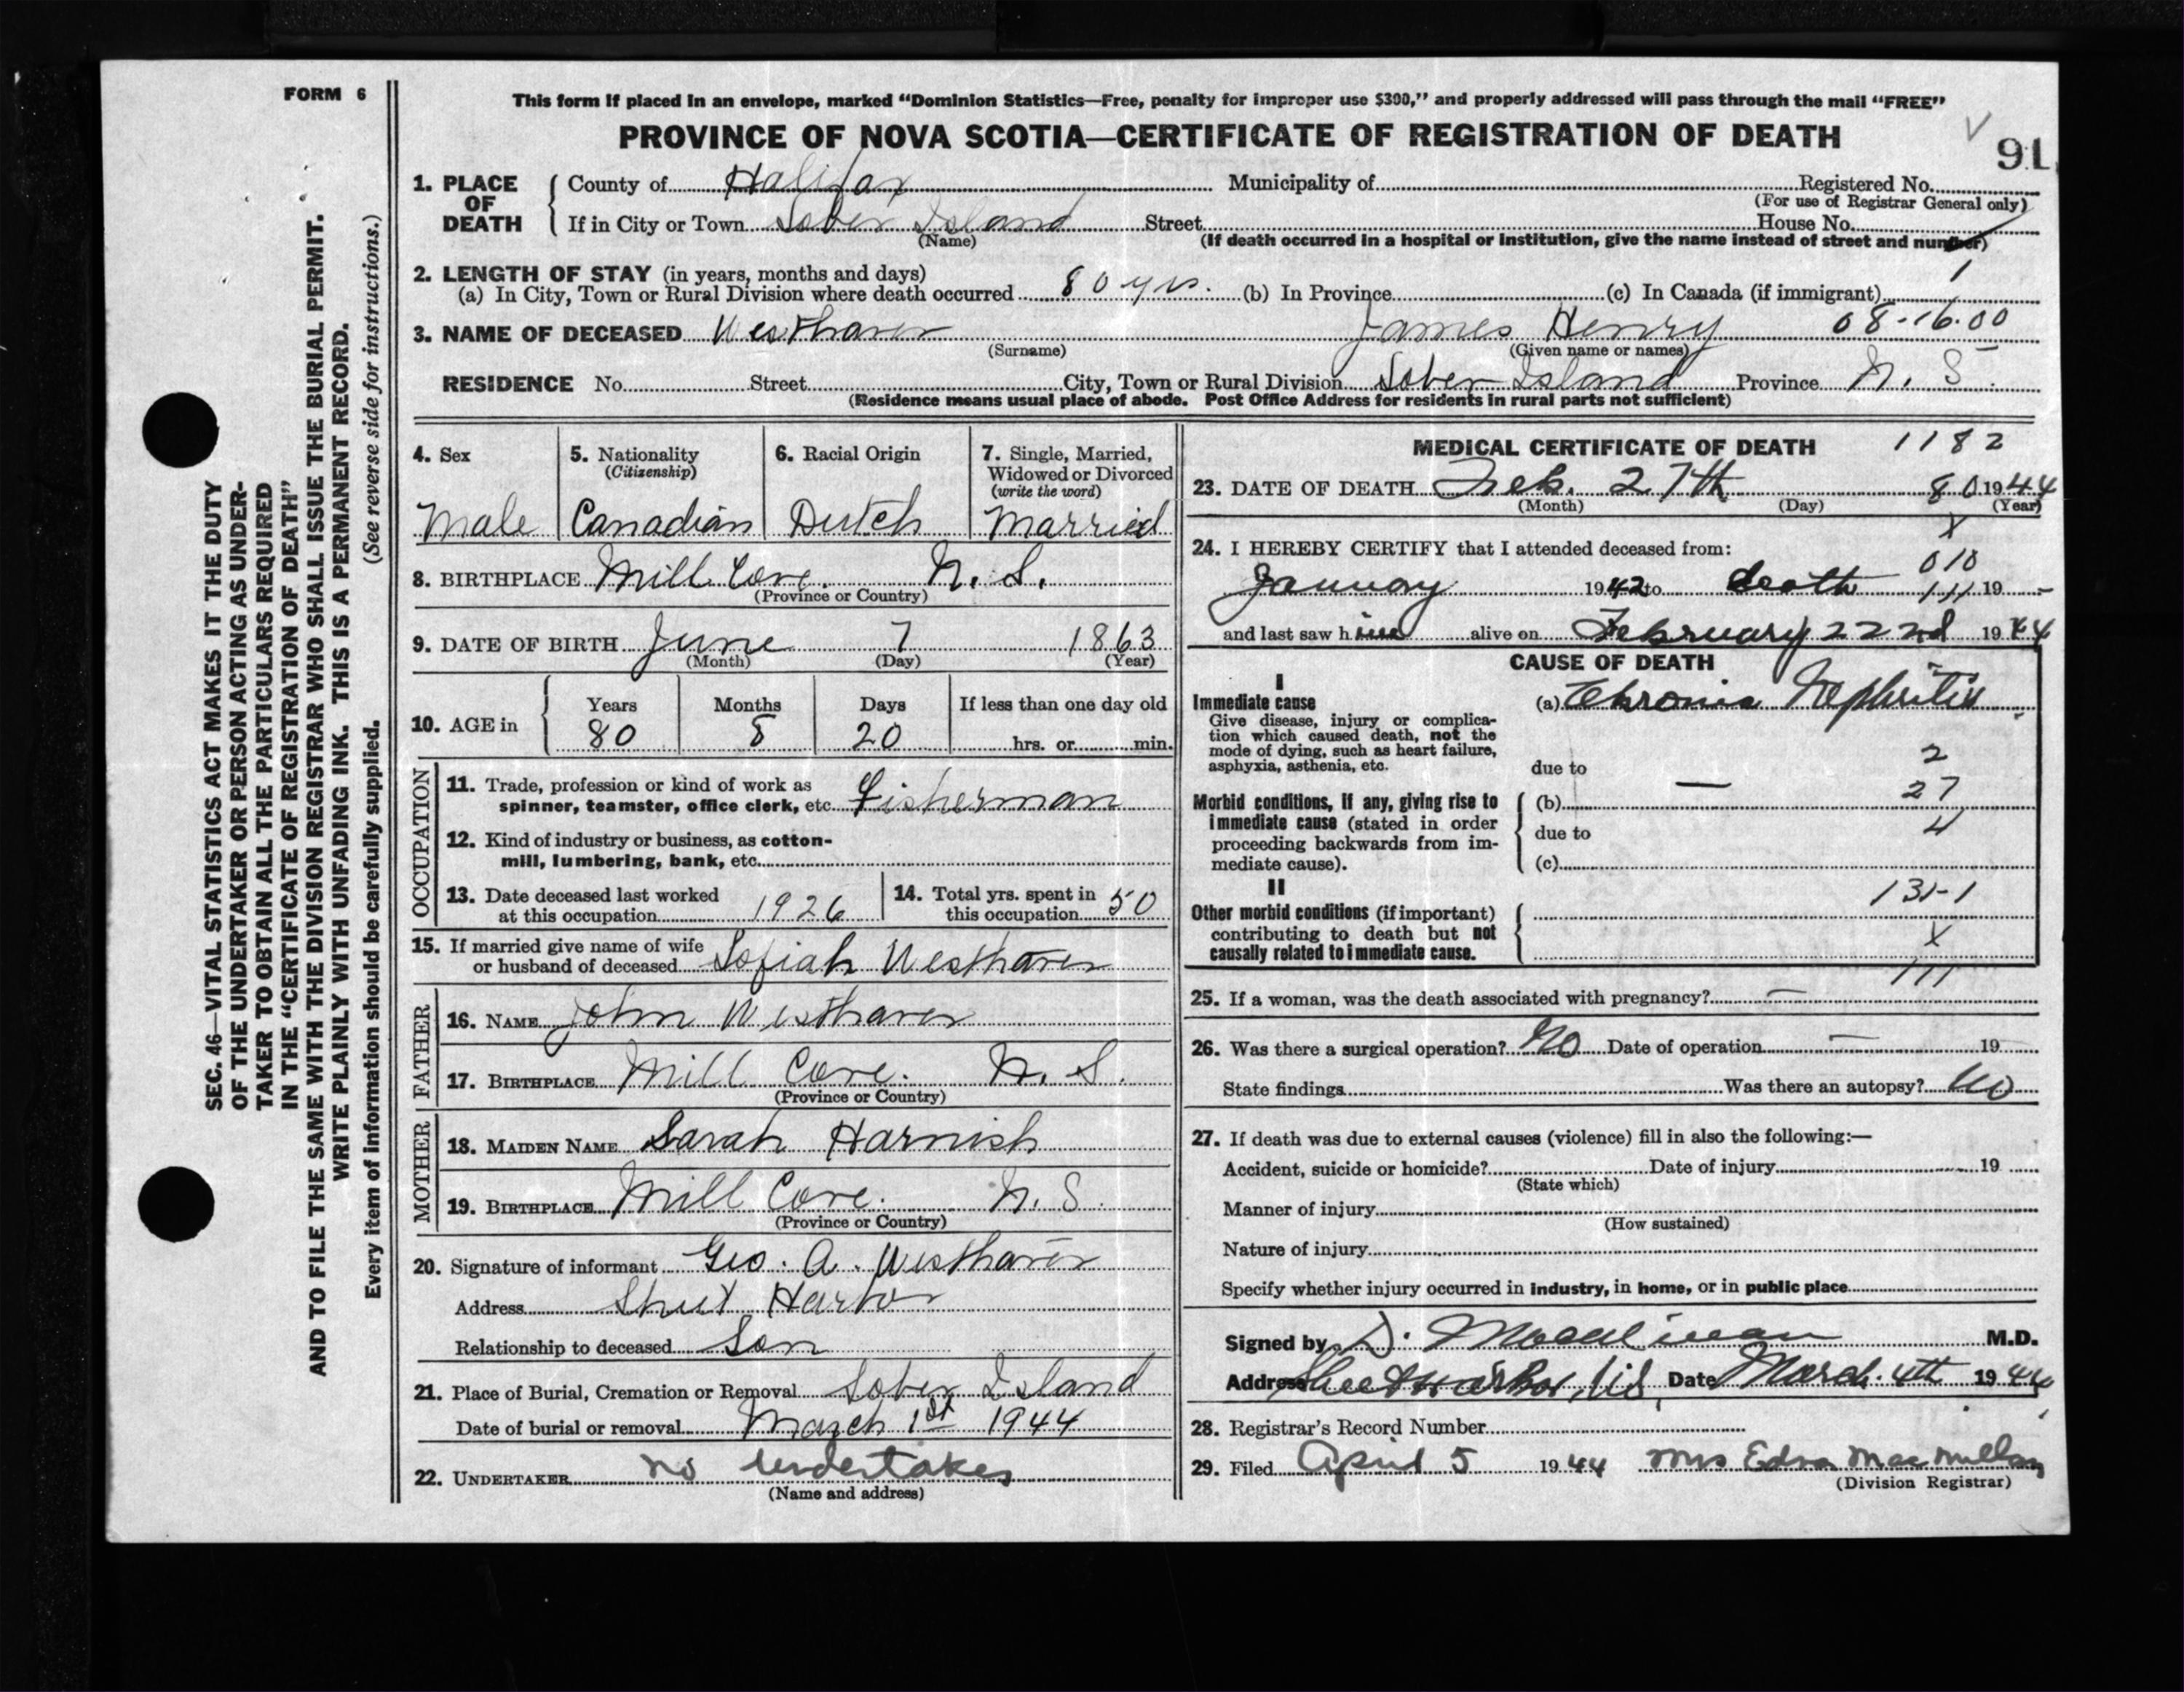 FORM 6
This form if placed in an envelope, marked "Dominion Statistics—Free, penalty for improper use $300," and properly addressed will pass through the mail "FREE"
PROVINCE OF NOVA SCOTIA—CERTIFICATE OF REGISTRATION OF DEATH
91
SEC. 46—VITAL STATISTICS ACT MAKES IT THE DUTY
OF THE UNDERTAKER OR PERSON ACTING AS UNDER-
TAKER TO OBTAIN ALL THE PARTICULARS REQUIRED
IN THE "CERTIFICATE OF REGISTRATION OF DEATH"
AND TO FILE THE SAME WITH THE DIVISION REGISTRAR WHO SHALL ISSUE THE BURIAL PERMIT.
WRITE PLAINLY WITH UNFADING INK. THIS IS A PERMANENT RECORD.
Every item of information should be carefully supplied. (See reverse side for instructions.)
1. PLACE OF DEATH
County of Halifax Municipality of Registered No.
(For use of Registrar General only)
If in City or Town Sober Island Street House No.
(Name) (If death occurred in a hospital or institution, give the name instead of street and number)
2. LENGTH OF STAY (in years, months and days) 1
(a) In City, Town or Rural Division where death occurred 80 yrs. (b) In Province (c) In Canada (if immigrant)
3. NAME OF DECEASED Westhaver James Henry 08-16.00
(Surname) (Given name or names)
RESIDENCE No. Street City, Town or Rural Division Sober Island Province N. S.
(Residence means usual place of abode. Post Office Address for residents in rural parts not sufficient)
4. Sex Male
5. Nationality (Citizenship) Canadian
6. Racial Origin Dutch
7. Single, Married, Widowed or Divorced (write the word) Married
8. BIRTHPLACE Mill Cove. N. S.
(Province or Country)
9. DATE OF BIRTH June 7 1863
(Month) (Day) (Year)
10. AGE in Years 80 Months 8 Days 20 If less than one day old hrs. or min.
OCCUPATION
11. Trade, profession or kind of work as
spinner, teamster, office clerk, etc. Fisherman
12. Kind of industry or business, as cotton-
mill, lumbering, bank, etc.
13. Date deceased last worked
at this occupation 1926
14. Total yrs. spent in
this occupation 50
15. If married give name of wife
or husband of deceased Sofiah Westhaver
FATHER
16. NAME John Westhaver
17. BIRTHPLACE Mill Cove. N. S.
(Province or Country)
MOTHER
18. MAIDEN NAME Sarah Harnish
19. BIRTHPLACE Mill Cove. N. S.
(Province or Country)
20. Signature of informant Geo. A. Westhaver
Address Sheet Harbor
Relationship to deceased Son
21. Place of Burial, Cremation or Removal Sober Island
Date of burial or removal March 1st 1944
22. UNDERTAKER no undertaker
(Name and address)
MEDICAL CERTIFICATE OF DEATH 1182
23. DATE OF DEATH Feb. 27th 80 1944
(Month) (Day) (Year)
X
24. I HEREBY CERTIFY that I attended deceased from:
010
January 1942 to death 111 19 -
and last saw him alive on February 22nd 1944
CAUSE OF DEATH
I
Immediate cause
Give disease, injury or complica-
tion which caused death, not the
mode of dying, such as heart failure,
asphyxia, asthenia, etc.
(a) Chronic Nephritis
2
due to
27
(b) —
4
due to
(c)
Morbid conditions, if any, giving rise to
immediate cause (stated in order
proceeding backwards from im-
mediate cause).
II
131-1
Other morbid conditions (if important)
contributing to death but not
causally related to immediate cause.
X
111
25. If a woman, was the death associated with pregnancy? —
26. Was there a surgical operation? No Date of operation — 19
State findings Was there an autopsy? No
27. If death was due to external causes (violence) fill in also the following:—
Accident, suicide or homicide? Date of injury 19
(State which)
Manner of injury
(How sustained)
Nature of injury
Specify whether injury occurred in industry, in home, or in public place
Signed by D. M.D.
Address Sheet Harbor, N.S. Date March 4th 1944
28. Registrar's Record Number
29. Filed April 5 1944 Mrs Edna MacMillan
(Division Registrar)